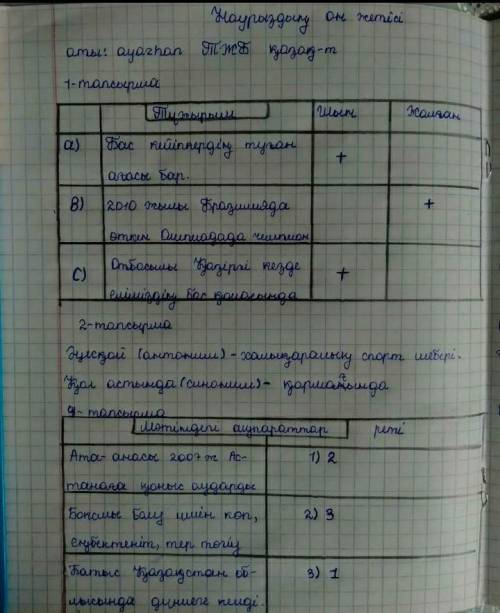 Наурыздың он жетісі
аты: ауагһап ТЖБ қазақ-т
1-тапсырма
Тұжырым Шын Жалған
а) Бас кейіпкердің туған +
ағасы бар.
В) 2010 жылы Бразилияда +
өткен Олимпиадада чемпион
С) Отбасылы Қазіргі кезде +
еліміздің бас қаласында
2-тапсырма
Әуесқой (антоним) - халықаралық спорт шебері.
Қол астында (синоним) - қарамағында
4-тапсырма
Мәтіндегі ақпараттар реті
Ата-анасы 2007ж Ас- 1) 2
танаға қоныс аударды
Боксшы болу үшін көп, 2) 3
еңбектеніп, тер төгіп
Батыс Қазақстан об- 3) 1
лысында дүниеге келді.